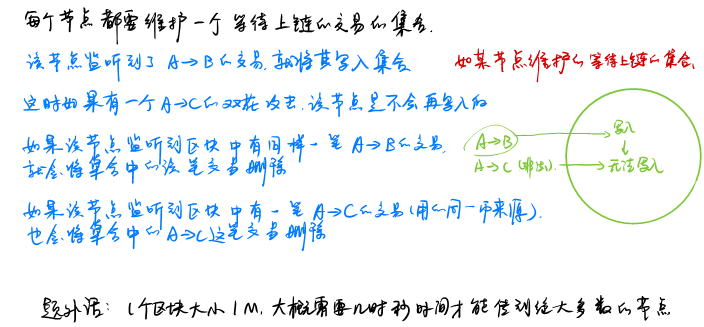 每个节点都要维护一个等待上链的交易的集合.
该节点监听到了 A→B的交易.就将其写入集合
如某节点维护的等待上链的集合.
这时如果有一个A→C的双花攻击.该节点是不会再写入的
如果该节点监听到区块中有同样一笔 A→B的交易,
就会将集合中的该笔交易删除
A→B
写入
A→C (非法).
无法写入
如果该节点监听到区块中有一笔 A→C的交易(用的同一币来源).
也会将集合中的A→C这笔交易删除
题外话: 1个区块大小1M.大概需要几时秒时间才能传到绝大多数的节点